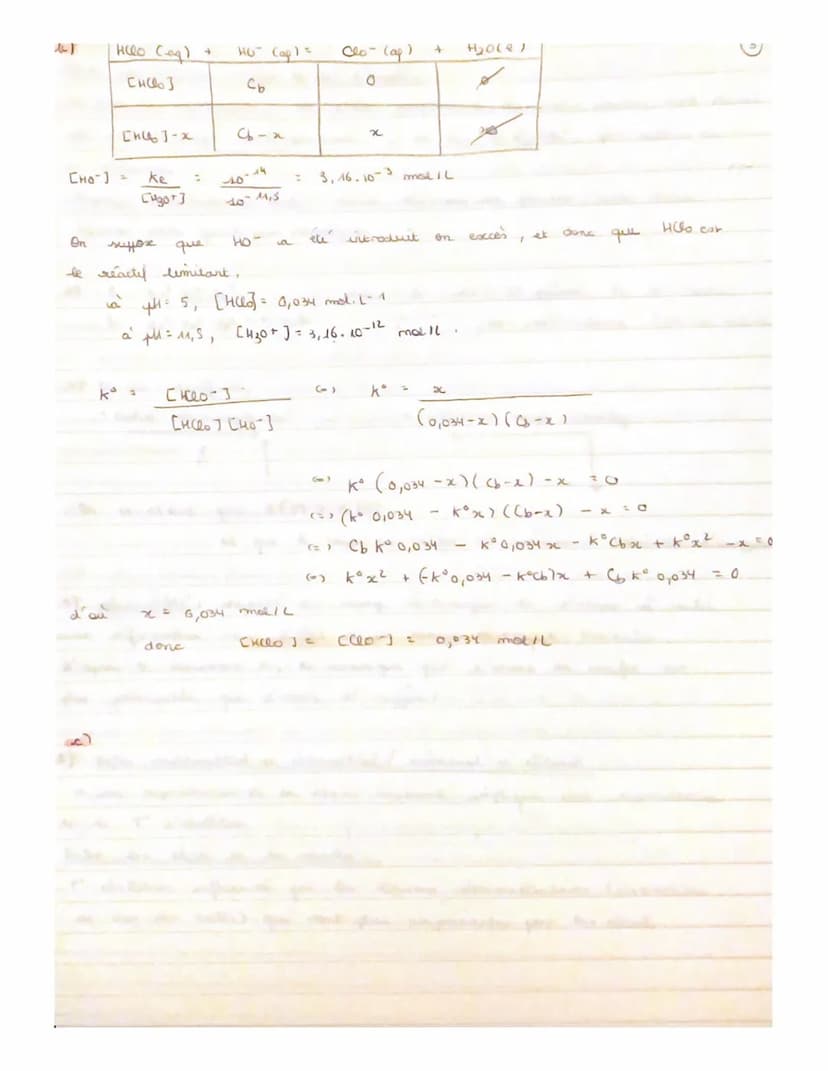 b)
HClO (aq) + HO⁻ (aq) = ClO⁻ (aq) + H₂O(l)
[HClO] Cb 0
[HClO]-x Cb-x x
[HO⁻] = Ke / [H₃O⁺] = 10⁻¹⁴ / 10⁻¹¹,⁵ = 3,16.10⁻³ mol/L
On suppose que HO⁻ a été introduit en excès, et donc que HClO est
le réactif limitant.
à pH = 5, [HClO] = 0,034 mol.L-1
à pH = 11,5, [H₃O⁺] = 3,16.10⁻¹² mol/L.
K° = [HClO⁻] / [HClO][HO⁻] (=) K° = x / (0,034-x)(Cb-x)
(=) K° (0,034 - x)(Cb-x) - x = 0
(=) (K° 0,034 - K°x)(Cb-x) - x = 0
(=) Cb K° 0,034 - K° 0,034 x - K°Cbx + K°x² - x = 0
(=) K°x² + (-K°0,034 - K°Cb)x + Cb K° 0,034 = 0
d'où x = 0,034 mol/L
donc [HClO] = [ClO⁻] = 0,034 mol/L
c)